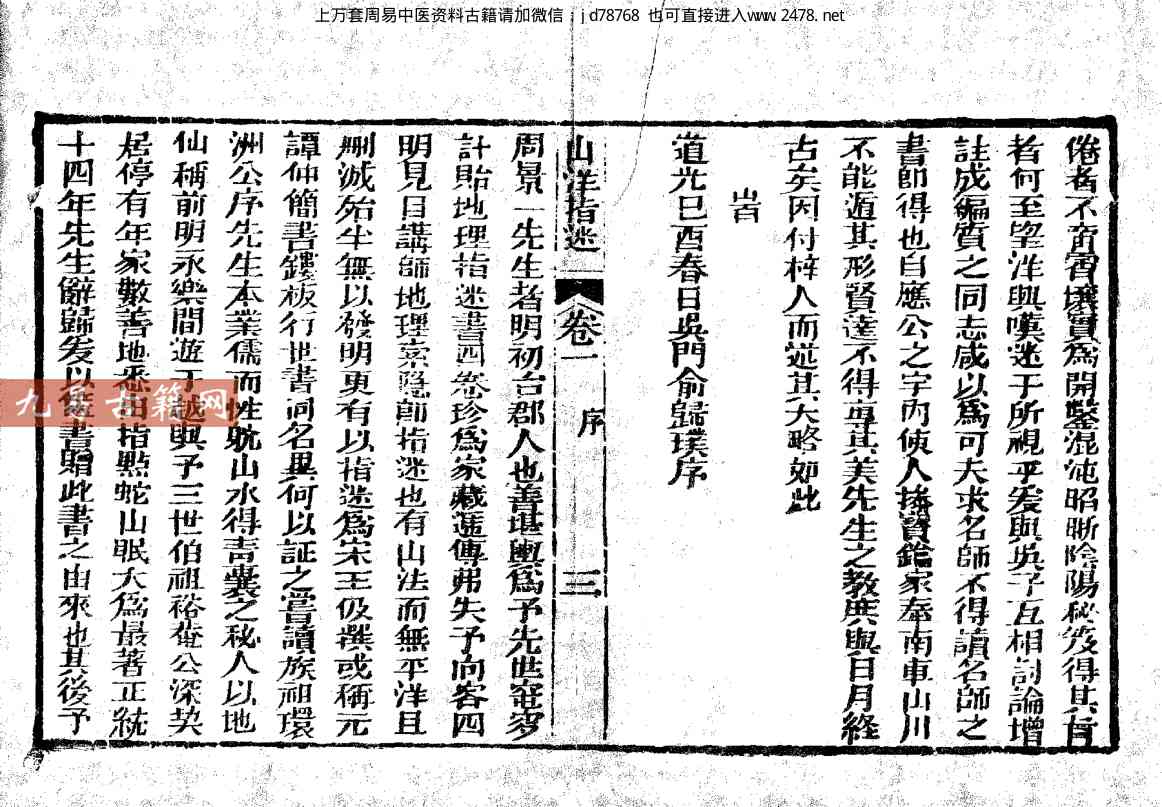 上万套周易中医资料古籍请加微信:jd78768 也可直接进入www.2478.net
倦者不啻霄壤實爲開鑿混沌昭晰陰陽秘笈得其旨
者何至望洋興嘆迷于所視乎爰與吳子互相討論增
註成編質之同志咸以爲可夫求名師不得讀名師之
書即得也自應公之宇内使人擁資鑰家奉南車山川
不能遁其形賢達不得專其美先生之教庶與日月経
古矣因付梓人而述其大略如此
旹
道光己酉春日吳門俞歸璞序
山洋指迷 卷一 序 三
周景一先生者明初台郡人也善堪輿爲予先世窀穸
計貽地理指迷書四卷珍爲家藏遞傳弗失予向客四
明見日講師地理索隱即指迷也有山法而無平洋且
刪滅殆半無以發明更有以指迷爲宋王伋撰或稱元
譚仲簡書鏤板行世書同名異何以証之嘗讀族祖環
洲公序先生本業儒而性躭山水得青囊之秘人以地
仙稱前明永樂間遊于越與予三世伯祖裕菴公深契
居停有年家數善地悉由指點蛇山眠犬爲最著正統
十四年先生辭歸爰以是書贈此書之由來也其後予
九易古籍网